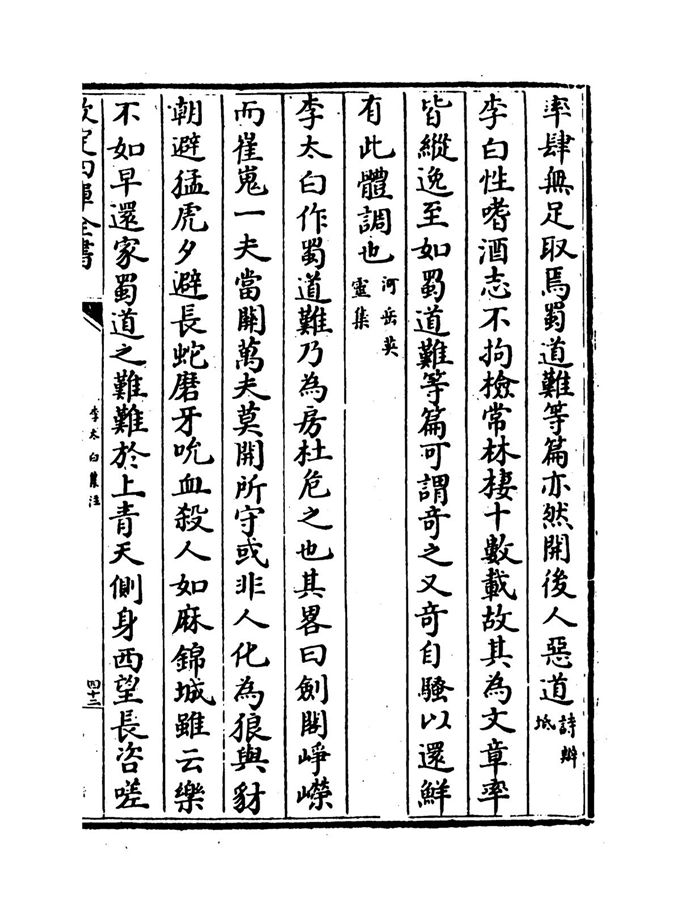 率肆無足取焉蜀道難等篇亦然開後人惡道詩辯坻
李白性嗜酒志不拘檢常林棲十數載故其為文章率
皆縱逸至如蜀道難等篇可謂竒之又竒自騷以還鮮
有此體調也河岳英靈集
李太白作蜀道難乃為房杜危之也其畧曰劍閣崢嶸
而崔嵬一夫當關萬夫莫開所守或非人化為狼與豺
朝避猛虎夕避長蛇磨牙吮血殺人如麻錦城雖云樂
不如早還家蜀道之難難於上青天側身西望長咨嗟
欽定四庫全書
李太白集注
四十二